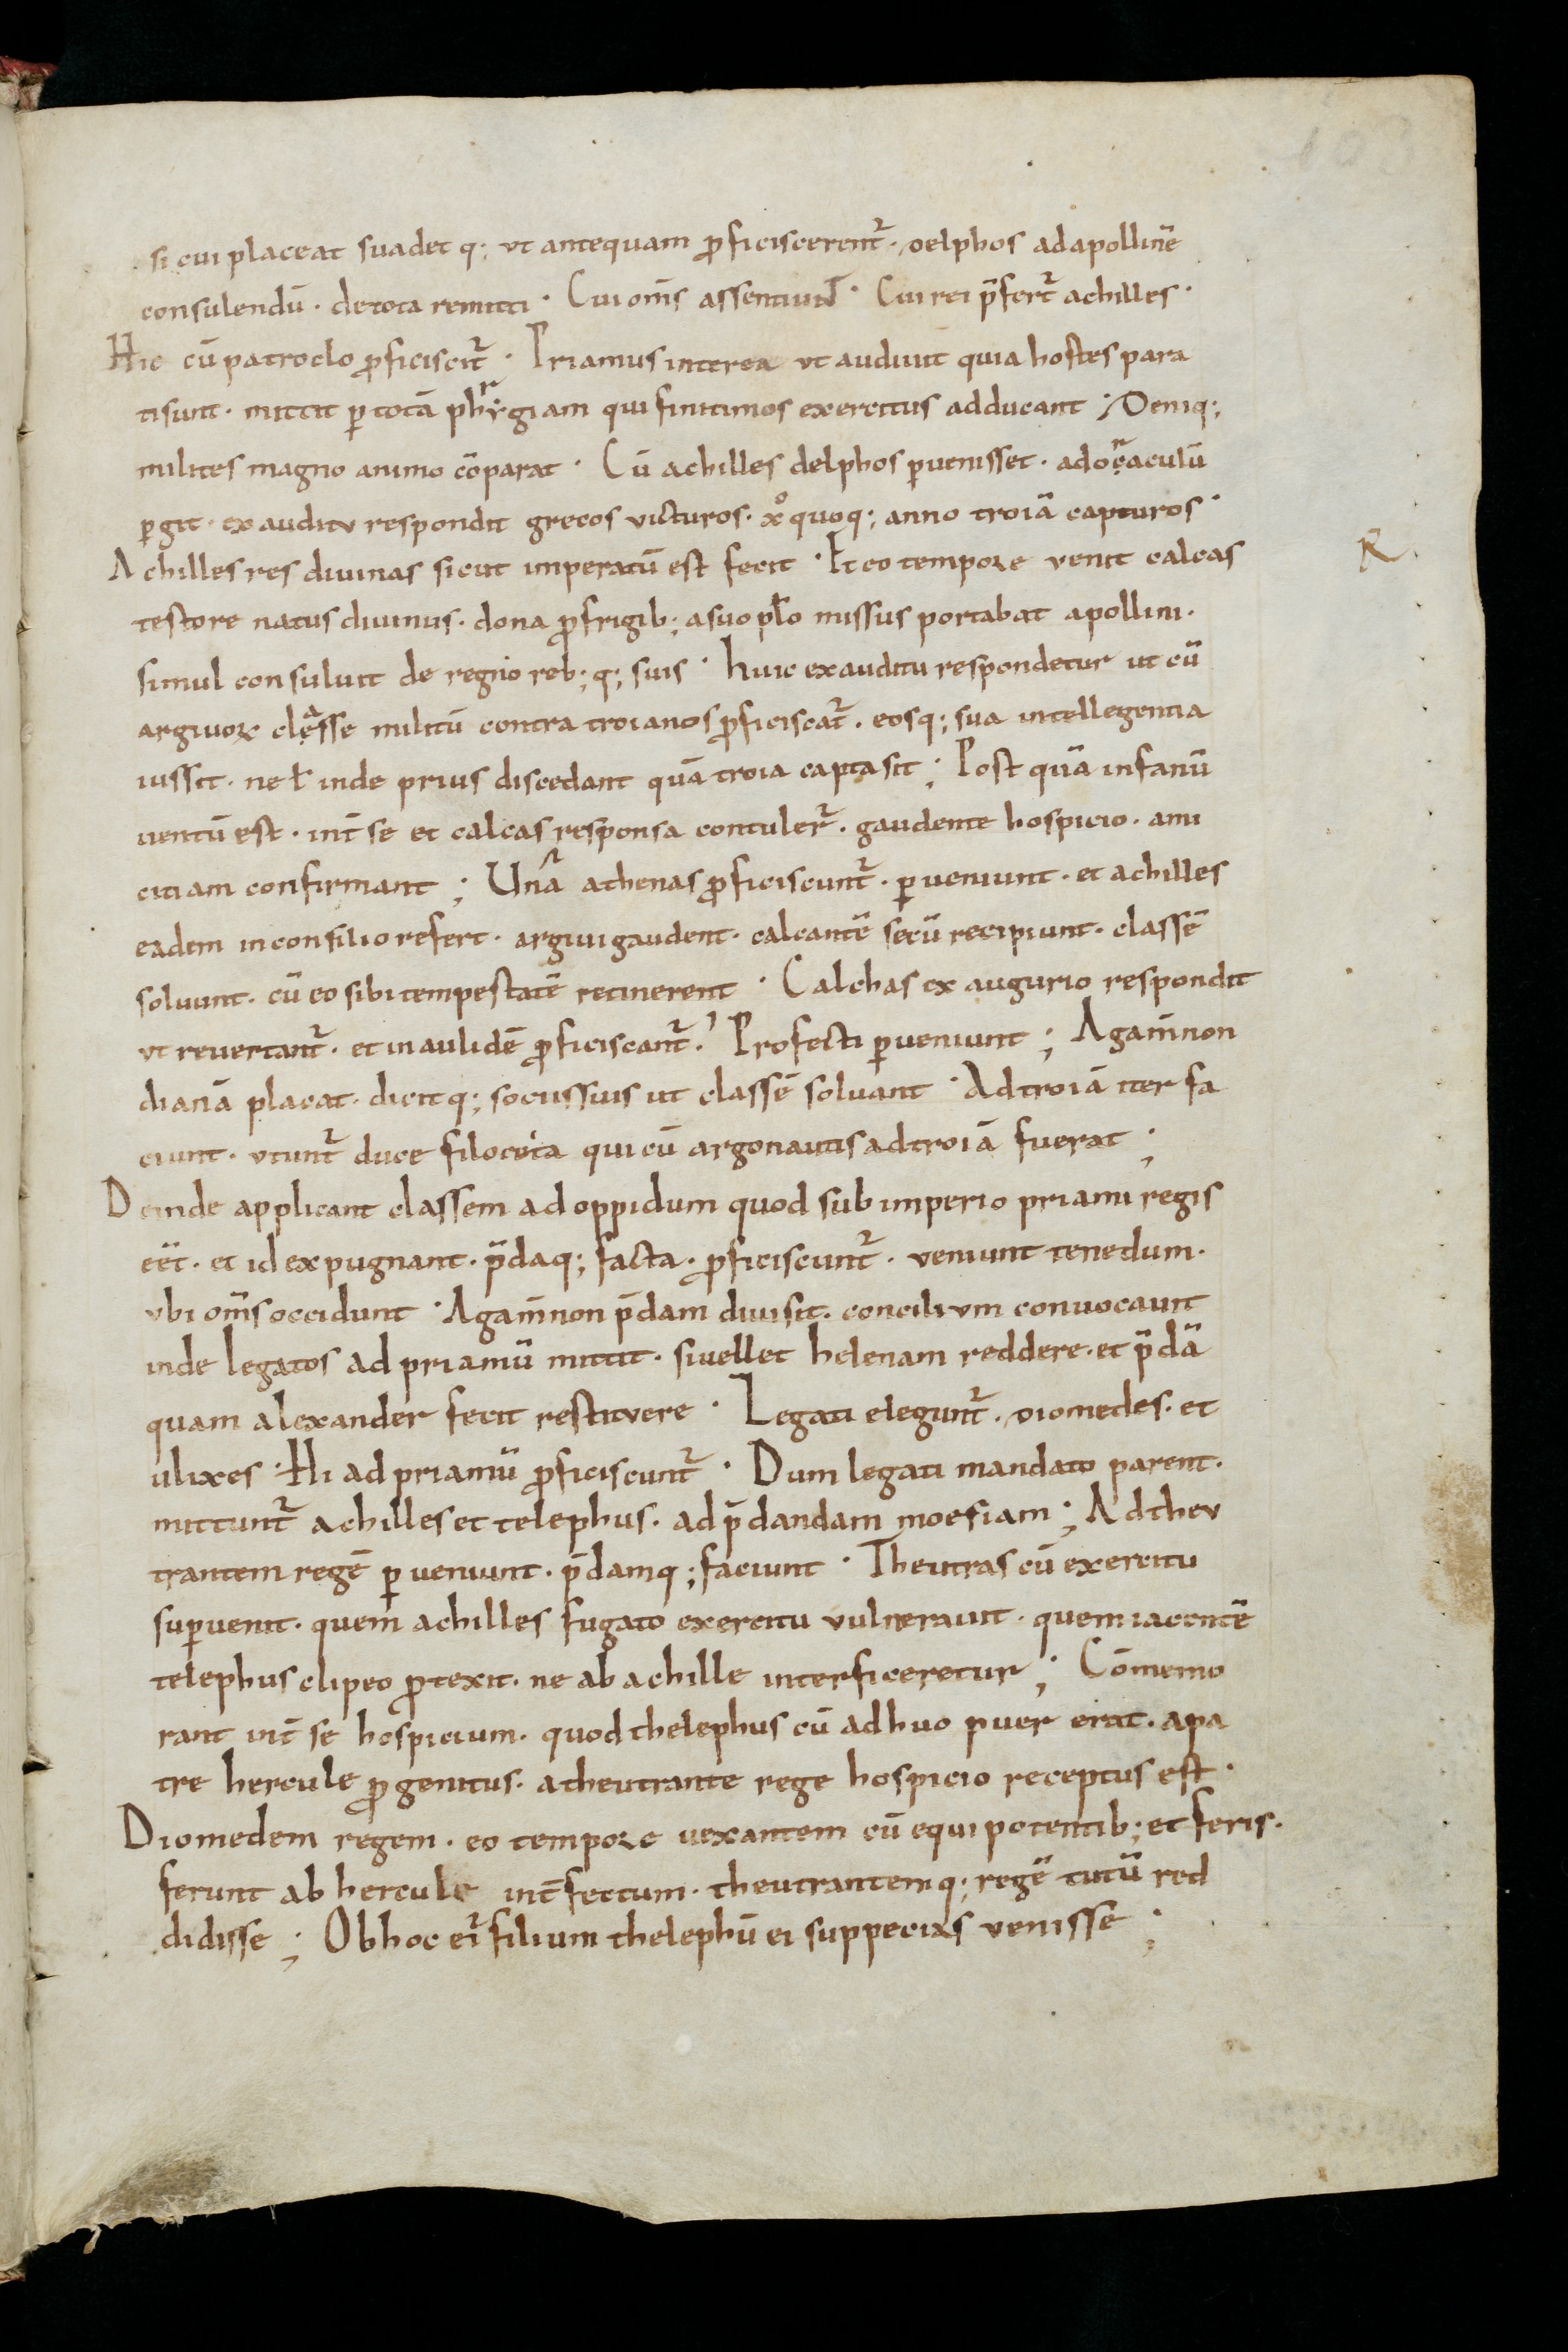 si cui placeat suadet q; ut antequam ꝓficiscerent᷑ · delphos ad apollinē
consulendū · detota remitti · Cui oms̄ assentiunt · Cui rei p̄fert᷑ achilles ·
Hic cū patroclo ꝓficiscit᷑ · Priamus interea ut audiuit quia hostes para
ti sunt · mittit ꝑ totā phrygiam qui finitimos exercitus adducant ; Deniq;
milites magno animo cōparat · Cū achilles delphos ꝑuenisset · ad oraculū
ꝑgit · ex auditu respondit grecos uicturos · x° quoq; anno troiā capturos ·
Achilles res diuinas sicut imperatū est fecit · Et eo tempore uenit calcas
testore natus diuinus · dona ꝓ frigib; a suo pl̄o missus portabat apollini ·
simul consuluit de regno reb; q; suis · huic ex auditu respondetur ut cū
argiuoꝝ classe militū contra troianos ꝓficiscat᷑ · eosq; sua intellegentia
iussit · ne ł inde prius discedant quā troia capta sit ; Post quā in fanū
uentū est · int̄ se et calcas responsa contuler᷑ · gaudente hospicio · ami
citiam confirmant ; Unā athenas ꝓficiscunt᷑ · ꝑueniunt · et achilles
eadem in consilio refert · argiui gaudent · calcantē secū recipiunt · classē
soluunt · cū eo sibi tempestatē retinerent · Calchas ex augurio respondit
ut reuertant᷑ · et in aulidē ꝓficiscant᷑ · Profecti ꝑueniunt ; Agam̄non
dianā placat · dicitq; sociis suis ut classē soluant · Ad troiā iter fa
ciunt · utunt᷑ duce filocteta qui cū argonautis ad troiā fuerat ;
Deinde applicant classem ad oppidum quod sub imperio priami regis
eēt · et id expugnant · p̄daq; facta · ꝓficiscunt᷑ · ueniunt tenedum ·
ubi oms̄ occidunt · Agam̄non p̄dam diuisit · concilium conuocauit
inde legatos ad priamū mittit · si uellet helenam reddere · et p̄dā
quam alexander fecit restituere · Legati elegunt᷑ · diomedes · et
ulixes · Hi ad priamū ꝓficiscunt᷑ · Dum legati mandato parent ·
mittunt᷑ achilles et telephus · ad p̄dandam moesiam ; Ad theu
trantem regē ꝑueniunt · p̄damq; faciunt · Theutras cū exercitu
suꝑuenit · quem achilles fugato exercitu uulnerauit · quem iacentē
telephus clipeo ꝓtexit · ne ab achille interficeretur ; Cōmemo
rant int̄ se hospicium · quod thelephus cū adhuc puer erat · a pa
tre hercule ꝓgenitus · a theutrante rege hospicio receptus est ·
Diomedem regem · eo tempore uexantem cū equi potentib; et feris ·
ferunt ab hercule int̄fectum · theutrantemq; regē tutū red
didisse ; Ob hoc ei᷑ filium thelephū ei suppecias uenisse ;
R